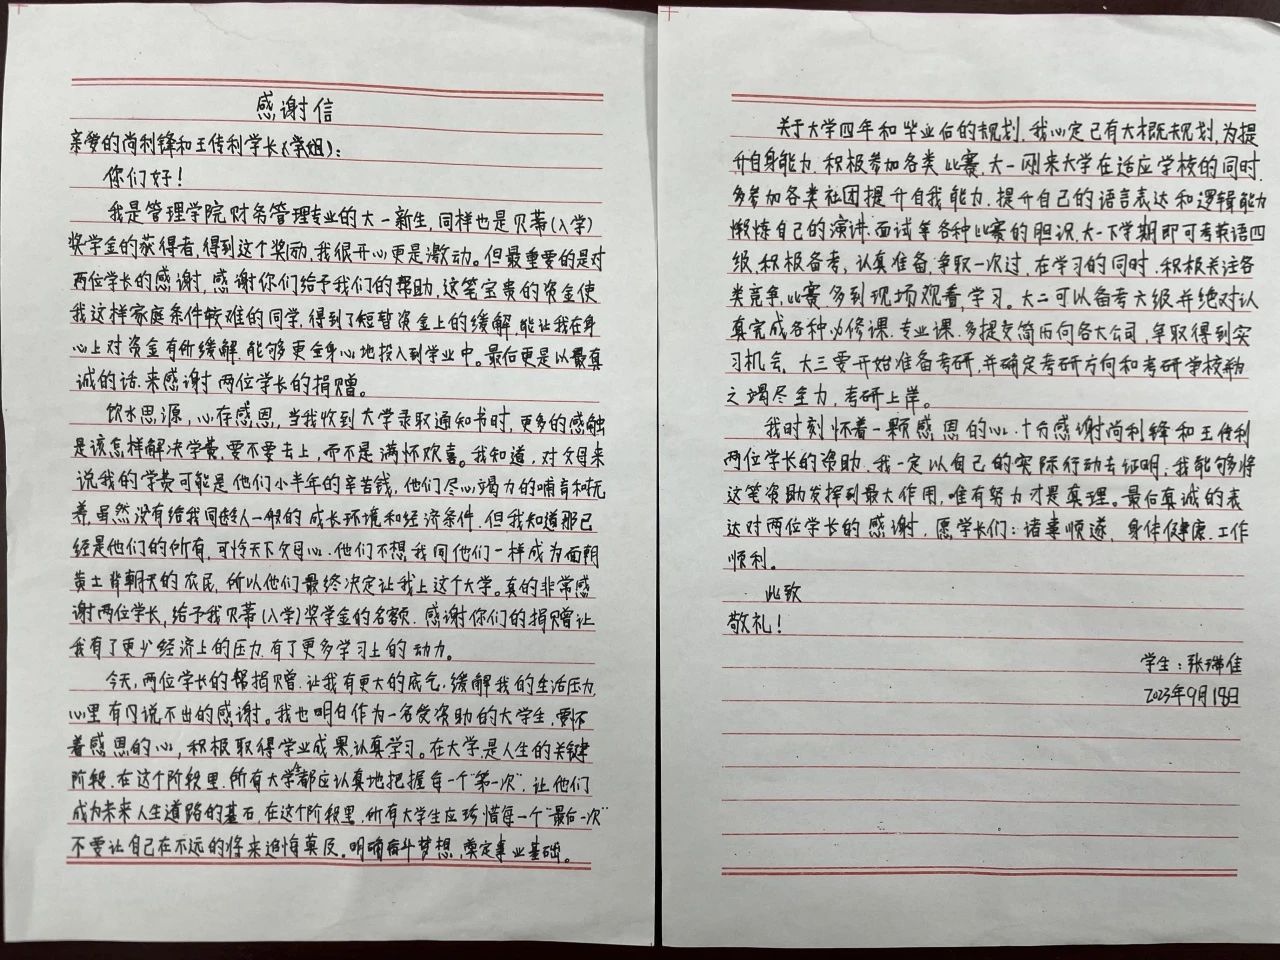 感谢信
亲爱的尚利锋和王传利学长(学姐):
你们好!
我是管理学院财务管理专业的大一新生,同样也是贝蒂(入学)
奖学金的获得者,得到这个奖励,我很开心更是激动。但最重要的是对
两位学长的感谢,感谢你们给予我们的帮助,这笔宝贵的资金使
我这样家庭条件较难的同学,得到了短暂资金上的缓解,能让我在身
心上对资金有所缓解,能够更全身心地投入到学业中。最后更是以最真
诚的话,来感谢两位学长的捐赠。
饮水思源,心存感恩,当我收到大学录取通知书时,更多的感触
是该怎样解决学费,要不要去上,而不是满怀欢喜。我知道,对父母来
说我的学费可能是他们小半年的辛苦钱,他们尽心竭力的哺育和抚
养,虽然没有给我同龄人一般的成长环境和经济条件,但我知道那已
经是他们的所有,可怜天下父母心,他们不想我同他们一样成为面朝
黄土背朝天的农民,所以他们最终决定让我上这个大学。真的非常感
谢两位学长,给予我贝蒂(入学)奖学金的名额,感谢你们的捐赠让
我有了更少经济上的压力,有了更多学习上的动力。
今天,两位学长的帮捐赠,让我有更大的底气,缓解我的生活压力,
心里有内说不出的感谢。我也明白作为一名受资助的大学生,要怀
着感恩的心,积极取得学业成果,认真学习。在大学,是人生的关键
阶段,在这个阶段里,所有大学生都应认真地把握每一个"第一次",让他们
成为未来人生道路的基石,在这个阶段里,所有大学生应珍惜每一个"最后一次"
不要让自己在不远的将来追悔莫及,明确奋斗梦想,奠定事业基础。
关于大学四年和毕业后的规划,我心定已有大概规划,为提
升自身能力,积极参加各类比赛,大一刚来大学在适应学校的同时,
多参加各类社团提升自我能力,提升自己的语言表达和逻辑能力
锻炼自己的演讲,面试等各种比赛的胆识,大一下学期即可考英语四
级,积极备考,认真准备,争取一次过,在学习的同时,积极关注各
类竞争,比赛多到现场观看,学习。大二可以备考六级并绝对认
真完成各种必修课,专业课,多提交简历向各大公司,争取得到实
习机会,大三要开始准备考研,并确定考研方向和考研学校,并为
之竭尽全力,考研上岸。
我时刻怀着一颗感恩的心,十分感谢尚利锋和王传利
两位学长的资助,我一定以自己的实际行动去证明,我能够将
这笔资助发挥到最大作用,唯有努力才是真理。最后真诚的表
达对两位学长的感谢,愿学长们:诸事顺遂,身体健康,工作
顺利。
此致
敬礼!
学生:张瑞佳
2023年9月18日